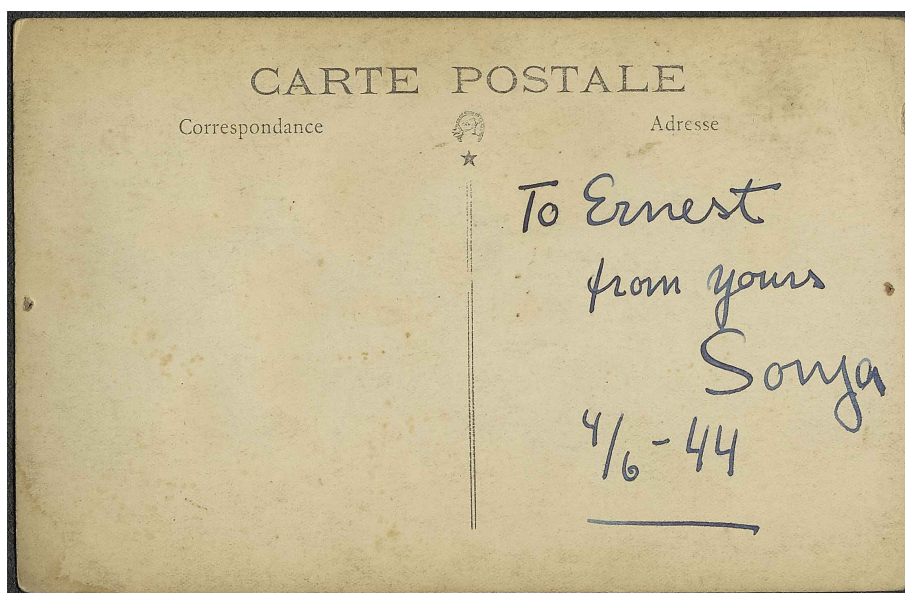 CARTE POSTALE
Correspondance
Adresse
To Ernest
from yours
Sonja
4/6-44